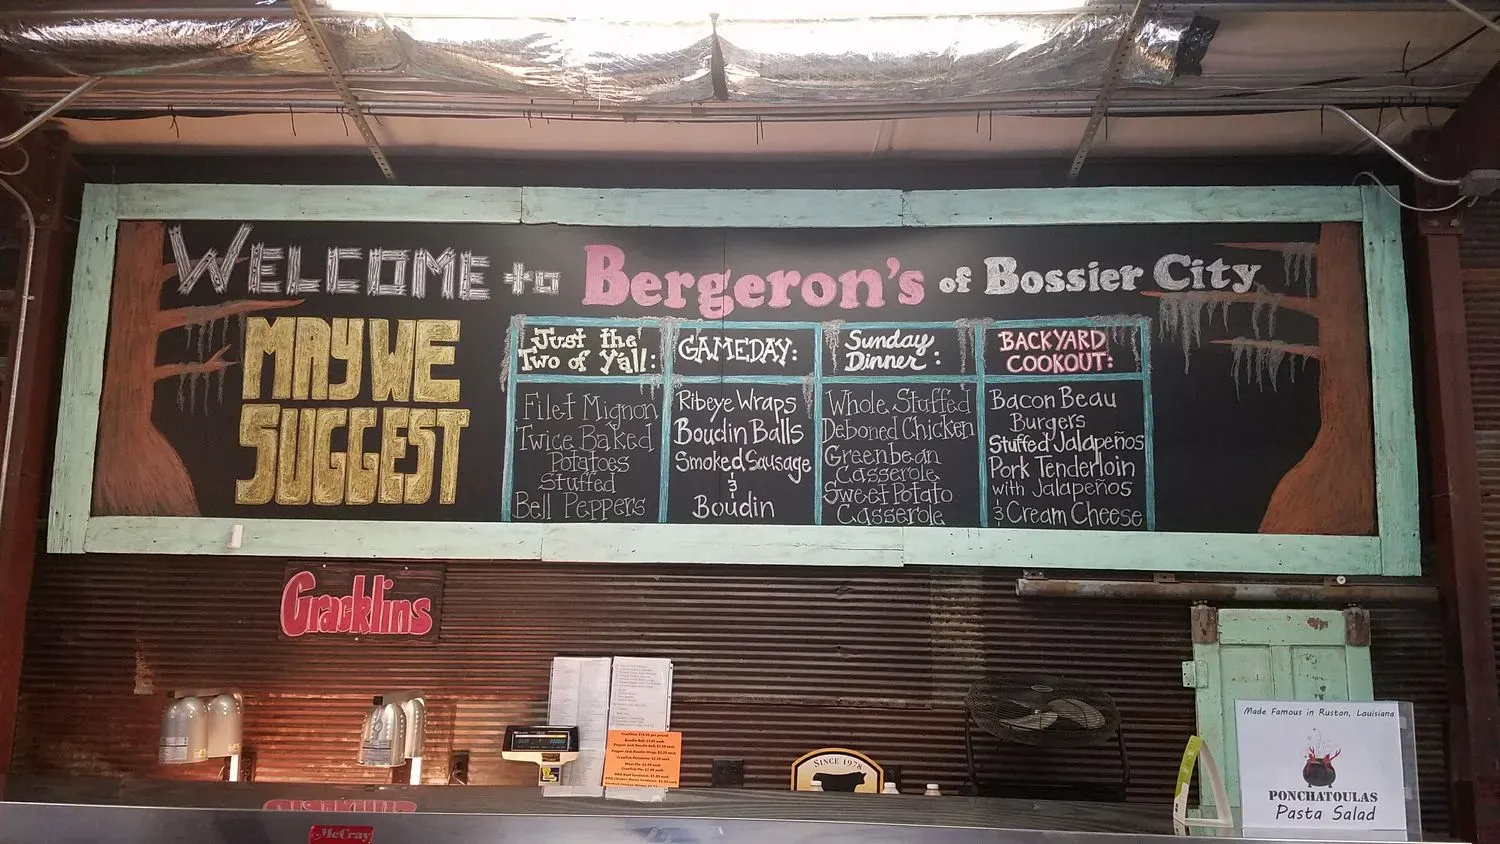 WELCOME to Bergeron's of Bossier City
MAY WE
SUGGEST
Just the
Two of Y'all:
Filet Mignon
Twice Baked
Potatoes
Stuffed
Bell Peppers
GAMEDAY:
Ribeye Wraps
Boudin Balls
Smoked Sausage
&
Boudin
Sunday
Dinner:
Whole Stuffed
Deboned Chicken
Greenbean
Casserole
Sweet Potato
Casserole
BACKYARD
COOKOUT:
Bacon Beau
Burgers
Stuffed Jalapeños
Pork Tenderloin
with Jalapeños
& Cream Cheese
Cracklins
SINCE 1978
McCray
Made Famous in Ruston, Louisiana
PONCHATOULAS
Pasta Salad